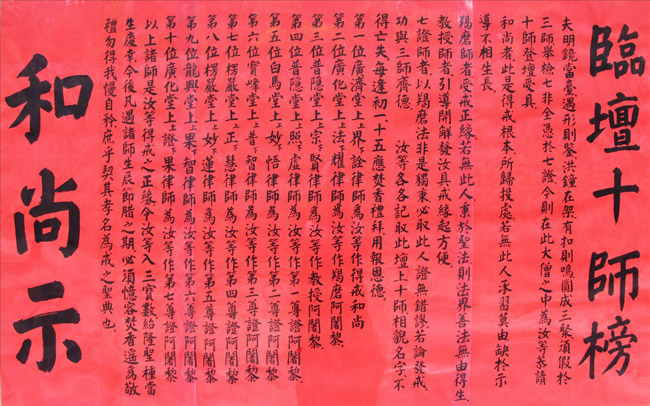 臨壇十師榜
夫明鏡當臺遇形則鑒洪鐘在架有扣則鳴圓成三聚須假於
三師舉檢七非全憑於七證今則在此大僧之中為汝等恭請
十師登壇受具
和尚者此是得戒根本所歸投處若無此人承習莫由缺於示
導不相生長
羯磨師者受戒正緣若無此人秉於聖法則法界善法無由得生
教授師者引導開解發汝具戒緣起方便
七證師者以羯磨法非是獨秉必取此人證無錯謬若論發戒
功與三師齊德 汝等各各記取此壇上十師相貌名字不
得亡失每逢初一十五應焚香禮拜用報恩德
第一位廣濟堂上上界下詮律師為汝等作得戒和尚
第二位廣化堂上上法下耀律師為汝等作羯磨阿闍黎
第三位普隱堂上上宗下賢律師為汝等作教授阿闍黎
第四位普隱堂上上照下虛律師為汝等作第一尊證阿闍黎
第五位白馬堂上上妙下悟律師為汝等作第二尊證阿闍黎
第六位寶峰堂上上普下智律師為汝等作第三尊證阿闍黎
第七位楞嚴堂上上正下慧律師為汝等作第四尊證阿闍黎
第八位楞嚴堂上上妙下蓮律師為汝等作第五尊證阿闍黎
第九位龍興堂上上果下智律師為汝等作第六尊證阿闍黎
第十位廣化堂上上證下果律師為汝等作第七尊證阿闍黎
以上諸師是汝等得戒之正緣令汝等入三寶數紹隆聖種當
生慶幸今後凡遇諸師生辰即腊之期必須憶容焚香遙為敬
禮勿得我慢自矜庶乎契其孝名為戒之聖典也
和尚示